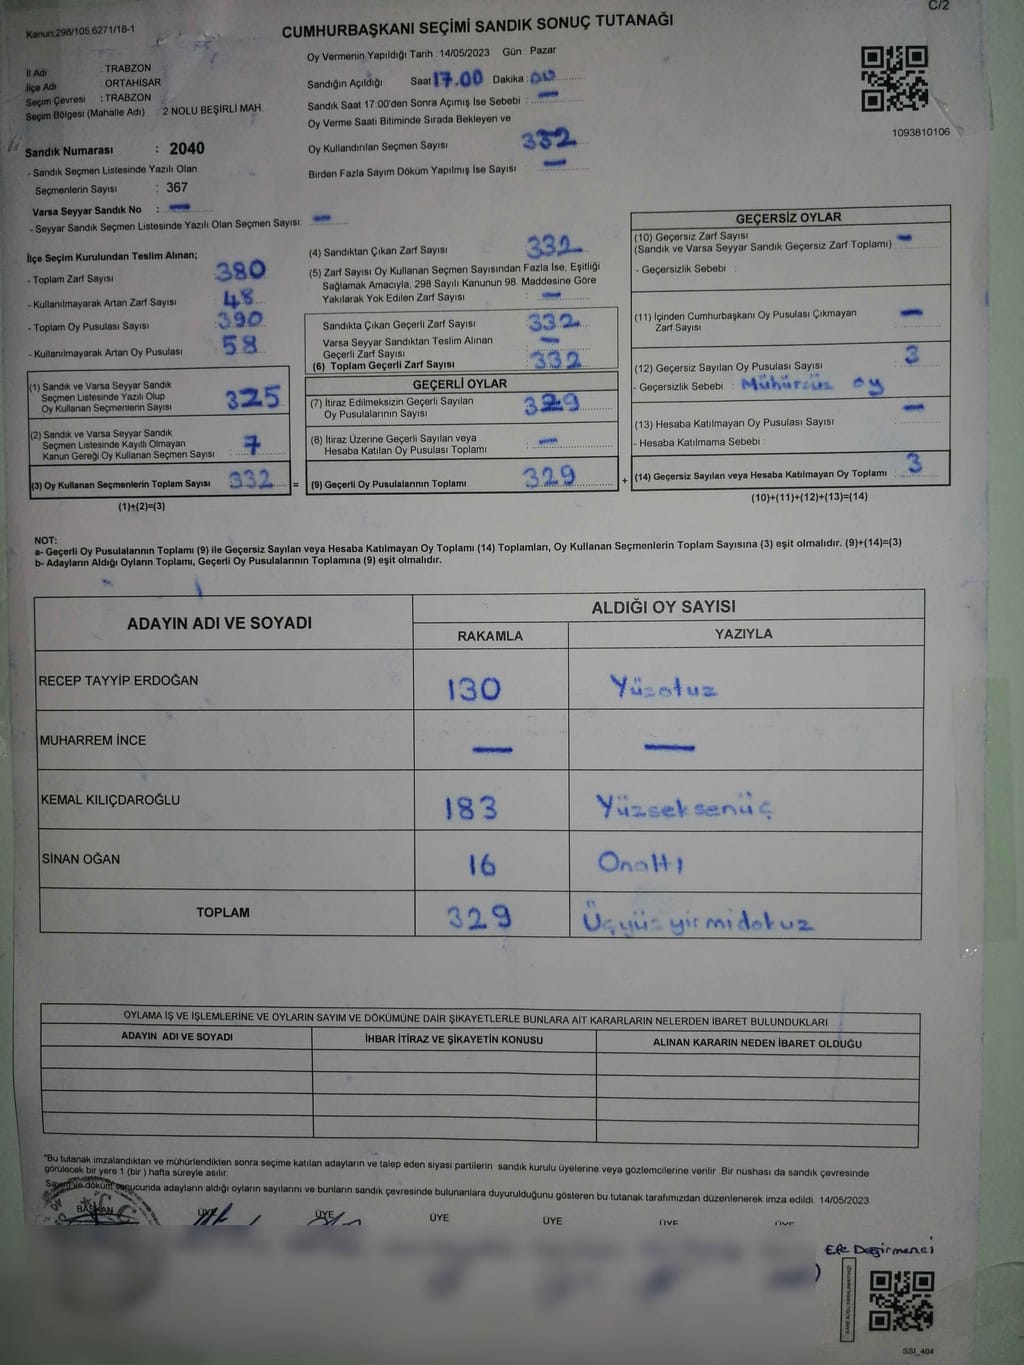 C/2
Kanun:298/105,6271/18-1
CUMHURBAŞKANI SEÇİMİ SANDIK SONUÇ TUTANAĞI
Oy Vermenin Yapıldığı Tarih : 14/05/2023 Gün : Pazar
İl Adı : TRABZON
İlçe Adı : ORTAHİSAR
Seçim Çevresi : TRABZON
Seçim Bölgesi (Mahalle Adı) : 2 NOLU BEŞİRLİ MAH.
Sandığın Açıldığı Saat 17.00 Dakika : 00
Sandık Saat 17:00'den Sonra Açımış İse Sebebi : —
Oy Verme Saati Bitiminde Sırada Bekleyen ve
Oy Kullandırılan Seçmen Sayısı : 332
Birden Fazla Sayım Döküm Yapılmış İse Sayısı : —
1093810106
Sandık Numarası : 2040
- Sandık Seçmen Listesinde Yazılı Olan
Seçmenlerin Sayısı : 367
Varsa Seyyar Sandık No : —
- Seyyar Sandık Seçmen Listesinde Yazılı Olan Seçmen Sayısı: —
İlçe Seçim Kurulundan Teslim Alınan;
- Toplam Zarf Sayısı 380
- Kullanılmayarak Artan Zarf Sayısı 48
- Toplam Oy Pusulası Sayısı 390
- Kullanılmayarak Artan Oy Pusulası 58
(1) Sandık ve Varsa Seyyar Sandık
Seçmen Listesinde Yazılı Olup
Oy Kullanan Seçmenlerin Sayısı 325
(2) Sandık ve Varsa Seyyar Sandık
Seçmen Listesinde Kayıtlı Olmayan
Kanun Gereği Oy Kullanan Seçmen Sayısı : 7
(3) Oy Kullanan Seçmenlerin Toplam Sayısı 332 =
(1)+(2)=(3)
(4) Sandıktan Çıkan Zarf Sayısı 332
(5) Zarf Sayısı Oy Kullanan Seçmen Sayısından Fazla İse, Eşitliği
Sağlamak Amacıyla, 298 Sayılı Kanunun 98. Maddesine Göre
Yakılarak Yok Edilen Zarf Sayısı : —
Sandıkta Çıkan Geçerli Zarf Sayısı : 332
Varsa Seyyar Sandıktan Teslim Alınan
Geçerli Zarf Sayısı : —
(6) Toplam Geçerli Zarf Sayısı : 332
GEÇERLİ OYLAR
(7) İtiraz Edilmeksizin Geçerli Sayılan
Oy Pusulalarının Sayısı : 329
(8) İtiraz Üzerine Geçerli Sayılan veya
Hesaba Katılan Oy Pusulası Toplamı : —
(9) Geçerli Oy Pusulalarının Toplamı : 329 +
GEÇERSİZ OYLAR
(10) Geçersiz Zarf Sayısı : —
(Sandık ve Varsa Seyyar Sandık Geçersiz Zarf Toplamı)
- Geçersizlik Sebebi :
(11) İçinden Cumhurbaşkanı Oy Pusulası Çıkmayan
Zarf Sayısı : —
(12) Geçersiz Sayılan Oy Pusulası Sayısı : 3
- Geçersizlik Sebebi : Mühürsüz oy
(13) Hesaba Katılmayan Oy Pusulası Sayısı : —
- Hesaba Katılmama Sebebi :
(14) Geçersiz Sayılan veya Hesaba Katılmayan Oy Toplamı : 3
(10)+(11)+(12)+(13)=(14)
NOT:
a- Geçerli Oy Pusulalarının Toplamı (9) ile Geçersiz Sayılan veya Hesaba Katılmayan Oy Toplamı (14) Toplamları, Oy Kullanan Seçmenlerin Toplam Sayısına (3) eşit olmalıdır. (9)+(14)=(3)
b- Adayların Aldığı Oyların Toplamı, Geçerli Oy Pusulalarının Toplamına (9) eşit olmalıdır.
ADAYIN ADI VE SOYADI ALDIĞI OY SAYISI
RAKAMLA YAZIYLA
RECEP TAYYİP ERDOĞAN 130 Yüzotuz
MUHARREM İNCE — —
KEMAL KILIÇDAROĞLU 183 Yüzseksenüç
SİNAN OĞAN 16 Onaltı
TOPLAM 329 Üçyüzyirmidokuz
OYLAMA İŞ VE İŞLEMLERİNE VE OYLARIN SAYIM VE DÖKÜMÜNE DAİR ŞİKAYETLERLE BUNLARA AİT KARARLARIN NELERDEN İBARET BULUNDUKLARI
ADAYIN ADI VE SOYADI İHBAR İTİRAZ VE ŞİKAYETİN KONUSU ALINAN KARARIN NEDEN İBARET OLDUĞU
"Bu tutanak imzalandıktan ve mühürlendikten sonra seçime katılan adayların ve talep eden siyasi partilerin sandık kurulu üyelerine veya gözlemcilerine verilir. Bir nüshası da sandık çevresinde
görülecek bir yere 1 (bir) hafta süreyle asılır.
Sayım ve döküm sonucunda adayların aldığı oyların sayılarını ve bunların sandık çevresinde bulunanlara duyurulduğunu gösteren bu tutanak tarafımızdan düzenlenerek imza edildi. 14/05/2023
BAŞKAN ÜYE ÜYE ÜYE ÜYE ÜYE ÜYE
Efe Değirmenci
SSI_404